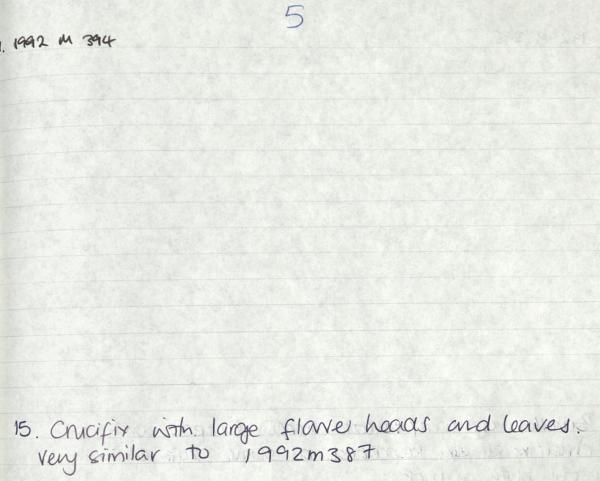 5
1. 1992 M 394
15. Crucifix with large flowe heads and leaves.
very similar to 1992m387